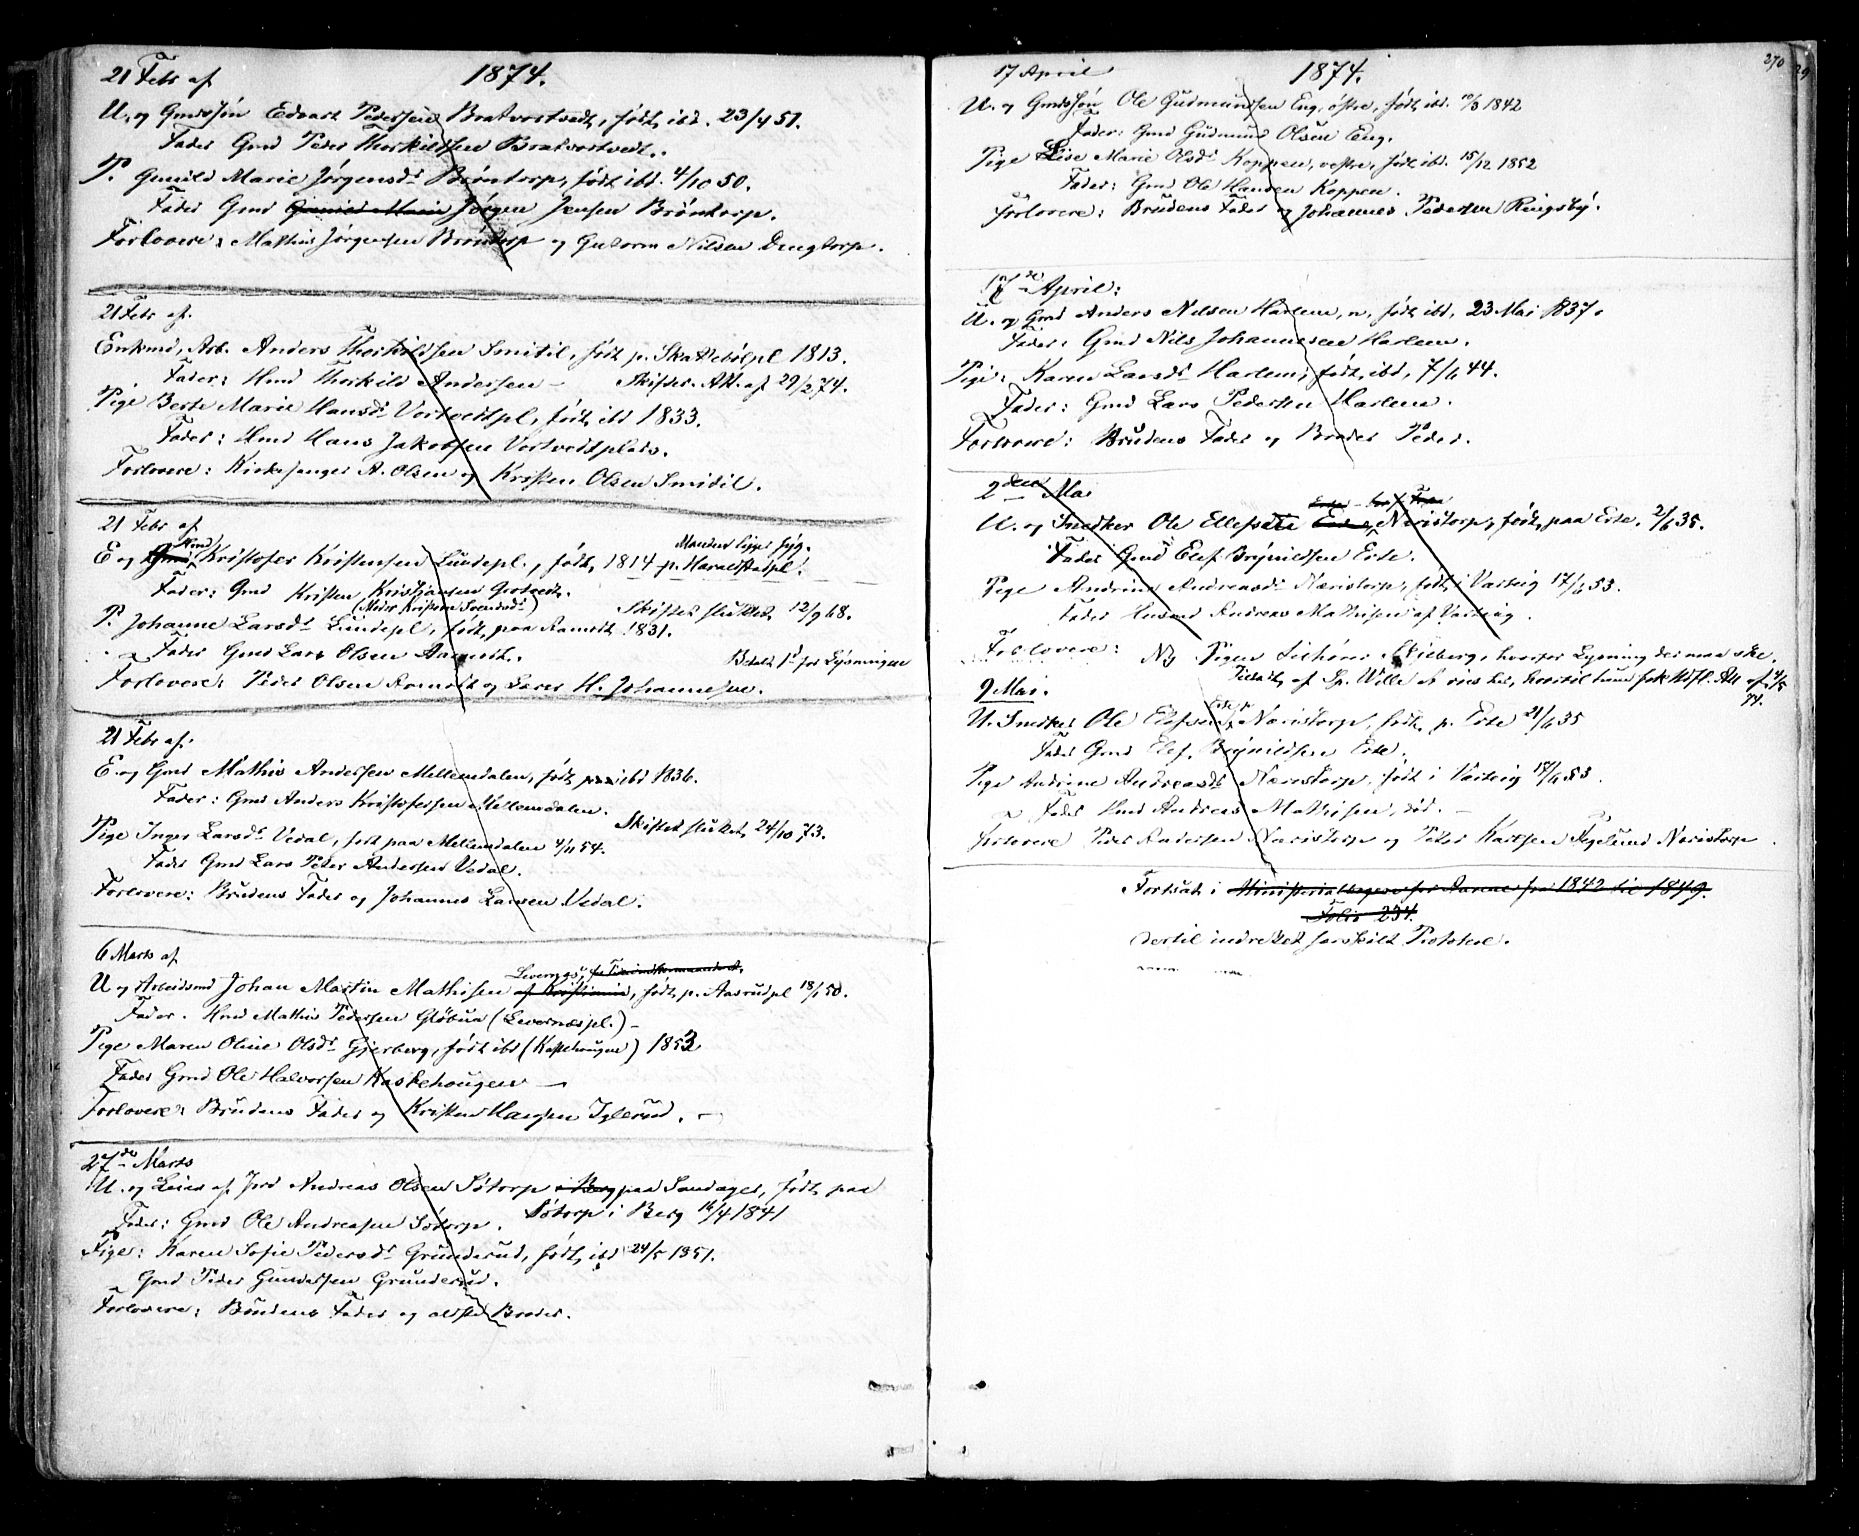 21 Febr af 1874.
U. og Gmdssøn Edvart Pedersen Bratvortvedt, født ibd. 23/4 51.
Fader Gmd Peder Thorkildsen Bratvortvedt.
P. Gunild Marie Jørgensdr Brøntorp, født ibd. 4/10 50.
Fader Gmd Gunild Marie Jørgen Jensen Brøntorp.
Forlovere: Mathis Jørgensen Brøntorp og Gutorm Nilsen Dengtorp.
21 Febr af.
Enkmd, Arb. Anders Thorkildsen Smitil, født p. Skattebølpl 1813.
Fader: Hmd Thorkild Andersen – Skifter. Att. af 29/2 74.
Pige Berte Marie Hansdr Vortvedtpl, født ibd 1833.
Fader: Hmd Hans Jakobsen Vortvedtplads.
Forlovere: Kirkesanger A. Olsen og Kristen Olsen Smitil.
21 Febr af
Manden ligger syg.
E og Gmd Hmd Kristofer Kristensen Lundepl., født 1814 p. Haraldstadpl.
Fader: Gmd Kristen Kristiansen Grotvedt.
(Moder Kristine Svendsdr) Skiftet sluttet 12/9 68.
P. Johanne Larsdr Lundepl, født paa Aamodt 1831.
Fader Gmd Lars Olsen Aamodt. Betalt for Lysningen
Forlovere: Peder Olsen Aamodt og Lars H. Johannesen.
21 Febr af.
E. og Gmd Mathis Andersen Mellemdalen, født paa ibd 1836.
Fader: Gmd Anders Kristofersen Mellemdalen.
Skiftet sluttet 24/10 73.
Pige Inger Larsdr Vedal, født paa Mellemdalen 4/11 54.
Fader Gmd Lars Peter Andersen Vedal.
Forlovere: Brudens Fader og Johannes Larsen Vedal.
6 Marts af
U og Arbeidsmd Johan Martin Mathisen af Kristiania, født p. Aasrudpl 18/1 50.
Fader. Hmd Mathis Pedersen Gløbua (Levernæspl.) –
Pige Maren Oline Olsdr Gjerberg, født ibd (Kaskehougen) 1853
Fader Gmd Ole Halvorsen Kaskehougen –
Forlovere: Brudens Fader og Kristen Hansen Iglerud. –
27de Marts
U. og Leier af Jord Andreas Olsen Søtorp i Berg paa Sandager, født paa
Søtorp i Berg 16/4 1841
Fader: Gmd Ole Andreasen Søtorp.
Pige: Karen Sofie Pedersdr Grunderud, født ibd 24/5 1851.
Gmd Peder Gundersen Grunderud.
Forlovere: Brudens Fader og ældste Broder.
270
17 April 1874.
U. og Gmdssøn Ole Gudmundsen Eng, østre, født ibd. 10/3 1842
Fader: Gmd Gudmund Olsen Eng.
Pige Lise Marie Olsdr Koppen, vestre, født ibd. 15/12 1852
Fader: Gmd Ole Hansen Koppen.
Forlovere: Brudens Fader og Johannes Pedersen Ringsby.
17de April:
U. og Gmd Anders Nilsen Harlem, n, født ibd. 23 Mai 1837.
Fader: Gmd Nils Johannesen Harlem.
Pige: Karen Larsdr Harlem, født ibd, 7/6 44.
Fader: Gmd Lars Pedersen Harlem.
Forlovere: Brudens Fader og Broder Peder.
2den Mai
U. og Snedker Ole Ellefsen Naristorp, født paa Erte. 2/6 35.
Fader Gmd Elef Brynildsen Erte.
Pige Andrine Andreasdr Næristorp, født i Varteig 17/6 53.
Fader Husmd Andreas Mathisen af Varteig.
Forlovere: NB Pigen tilhører Skjeberg, hvorfor Lysning der maa ske.
9 Mai.
U. Snedker Ole Elefsen Næristorp, født p. Erte 21/6 35
Fader Gmd Elef. Brynildsen Erte.
Pige Andrine Andreasdr Næristorp født i Varteig 18/6 53.
Fader Hmd Andreas Mathisen, død. –
Forlovere Peder Andersen Næristorp og Peter Karlsen Fuglesund Næristorp.
Fortsat i Ministerialbogen for Aarene fra 1842 til 1849.
Folio 234.
dertil indrettet særskilt Protokol.